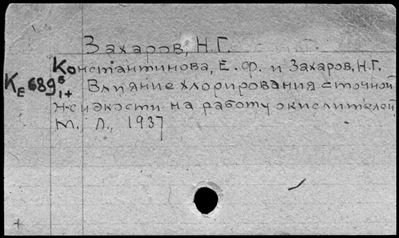 Захаров, Н.Г.
Константинова, Е.Ф. и Захаров, Н.Г.
КЕ 689 6/1+ Влияние хлорирования сточной
жидкости на работу окислителей
М. Л., 1937